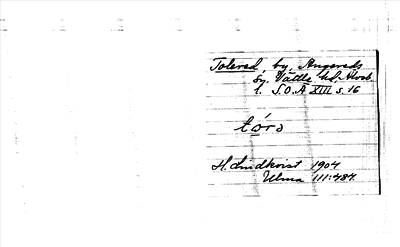 Tolered, by, Angereds
sn, Vättle hd, Älvsb.
l. S.O.Ä XIII s. 16
tóro
H. Lindkvist 1904
Ulma 111:484.